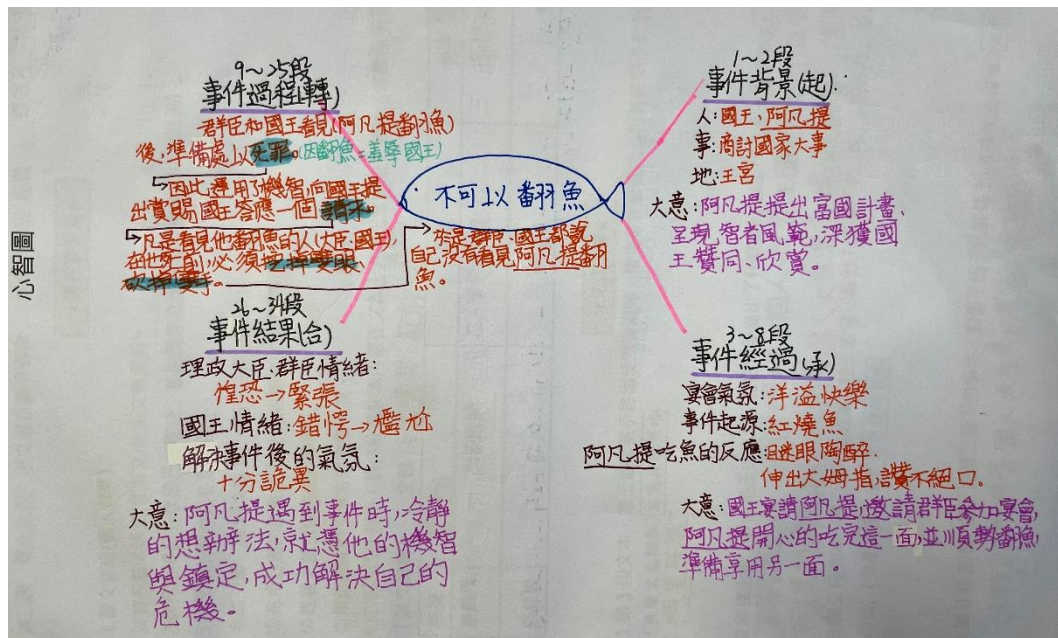 心智圖
不可以翻魚
1～2段
事件背景(起)
人:國王、阿凡提
事:商討國家大事
地:王宮
大意:阿凡提提出富國計畫、
呈現智者風範,深獲國
王贊同、欣賞。
3～8段
事件經過(承)
宴會氣氛:洋溢快樂
事件起源:紅燒魚
阿凡提吃魚的反應:瞇眼陶醉、
伸出大姆指,讚不絕口。
大意:國王宴請阿凡提,邀請群臣參加宴會,
阿凡提開心的吃完這一面,並順勢翻魚,
準備享用另一面。
9～25段
事件過程(轉)
群臣和國王看見(阿凡提翻魚)
後,準備處以死罪。(因翻魚=羞辱國王)
因此運用了機智,向國王提
出賞賜國王答應一個請求。
凡是看見他翻魚的人(大臣、國王),
在他死前,必須挖掉雙眼、
砍掉雙手。
於是群臣、國王都說
自己沒有看見阿凡提翻
魚。
26～34段
事件結果(合)
理政大臣、群臣情緒:
惶恐→緊張
國王情緒:錯愕→尷尬
解決事件後的氣氛:
十分詭異
大意:阿凡提遇到事件時,冷靜
的想辦法,就憑他的機智
與鎮定,成功解決自己的
危機。